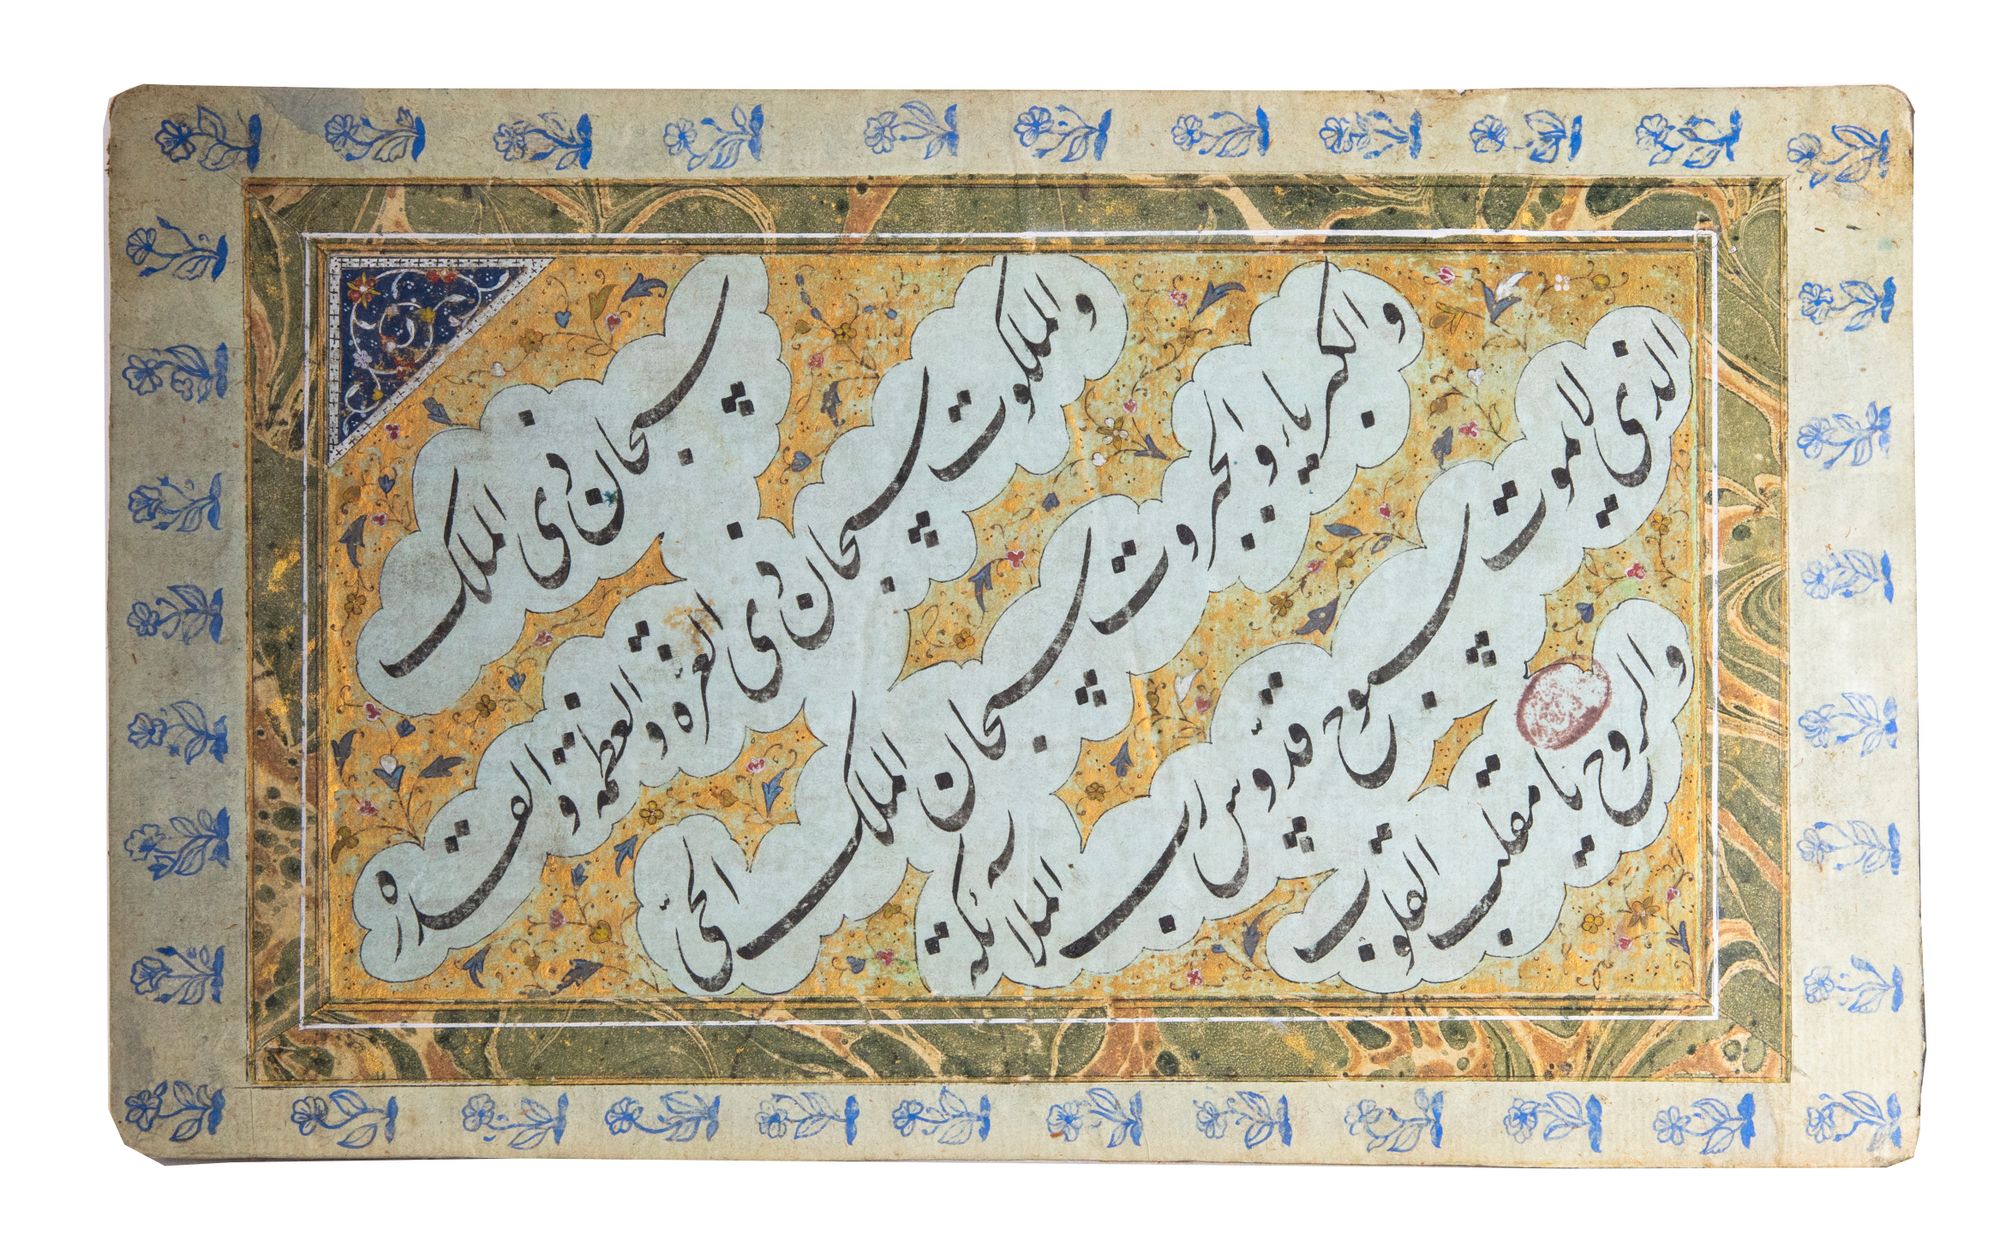 سبحان ذی الملک
والملکوت سبحان ذی العزة والعظمة والقدره
والکبریاء والجبروت سبحان الملک الحی
الذی لا یموت سبوح قدوس رب الملائکة
والروح یا مقلب القلوب